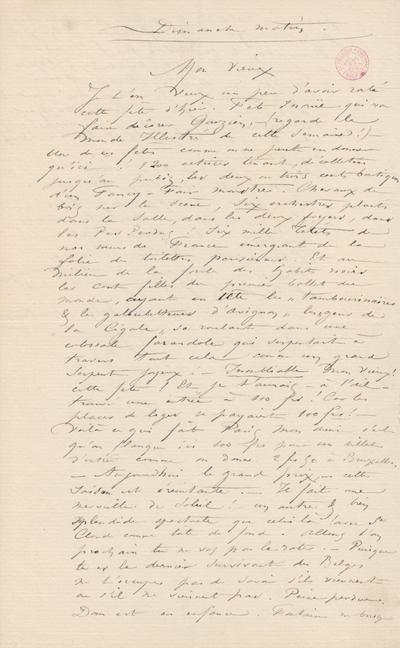 Dimanche matin.
Mon Vieux
Je t'en veux un peu d'avoir raté
cette fête d'hier. Fête inouïe qui va
faire décorer Gouzien, (regarde le
Monde Illustré de cette semaine!)
Une de ces fêtes comme on ne peut en donner
qu'ici! 1200 actrices décolletées
jusqu'au pubis, les deux ou trois cents boutiques
d'un Fancy-Fair monstre. Chevaux de
bois sur la scène, six orchestres placés
dans la salle, dans les deux foyers, dans
les Pas Perdus! Six mille
de France émergeant de la
folie de toilettes, Et au
milieu de la foule des habits noirs
les cent filles du premier ballet du
monde, ayant en tête les "tambourinaires
& les galoubetteurs d'Avignon,
la Cigale", se roulant dans une
colossale farandole qui serpentait à
travers tout cela comme un grand
serpent joyeux! — Inoubliable mon vieux!
cette fête! Et je t'aurais à l'œil
trouvé une entrée à 100 frs! Car les
places de loges se payaient 100 frs! —
Voilà ce qui fait Paris mon ami c'est
qu'on flanque ici 100 frs pour un billet
d'entrée comme on donne à Bruxelles.
— Aujourdhui le grand prix, cette
est éreintante. — Il fait une
merveille de soleil! un autre & bien
splendide spectacle que celui là avec St
Cloud comme toile de fond. Allons l'an
prochain tu ne pas — Puisque
tu es le dernier survivant des Belges
ne t'occupes pas de savoir s'ils viennent
ou s'ils ne viennent pas. Peine perdue.
Dom est en enfance.